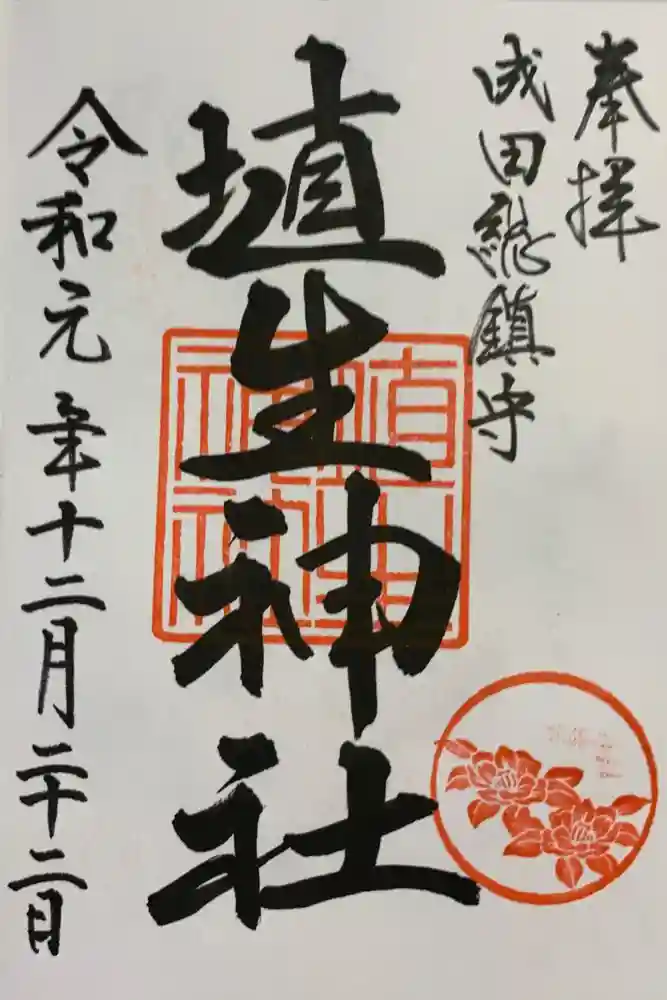 奉拝
成田総鎮守
埴生神社
令和元年十二月二十二日
埴生神社